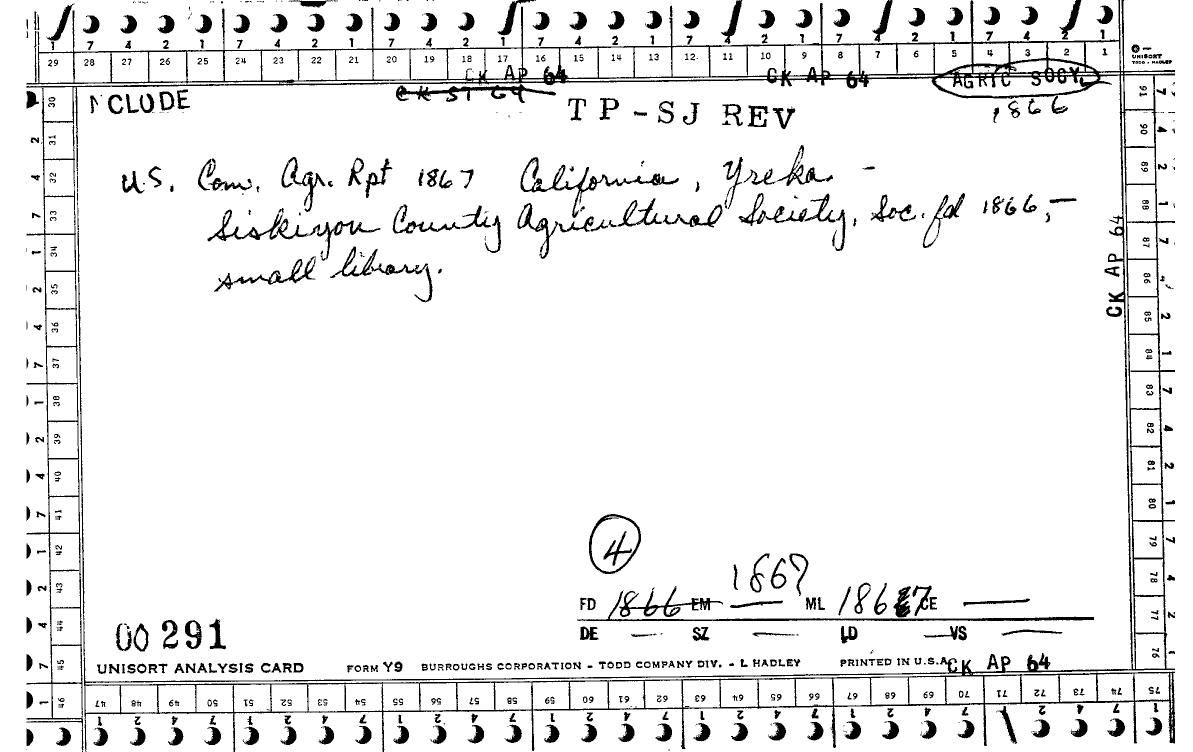 1 7 4 2 1 7 4 2 1 7 4 2 1 7 4 2 1 7 4 2 1 7 4 2 1 7 4 2 1
29 28 27 26 25 24 23 22 21 20 19 18 17 16 15 14 13 12 11 10 9 8 7 6 5 4 3 2 1
UNISORT
TODD - HADLEY
CK AP 64 CK AP 64 AGRIC SOCY.
CK ST 64
NCLUDE TP-SJ REV 1866
U.S. Com. Agr. Rpt 1867 California, Yreka. -
Siskiyou County Agricultural Society, Soc. fd 1866, -
small library.
CK AP 64
30 31 32 33 34 35 36 37 38 39 40 41 42 43 44 45 46
2 4 7 1 2 4 7 1 2 4 7 1 2 4 7 1
91 90 89 88 87 86 85 84 83 82 81 80 79 78 77 76
4
1867
FD 1866 EM — ML 1867 CE —
DE — SZ — LD — VS —
00 291
UNISORT ANALYSIS CARD FORM Y9 BURROUGHS CORPORATION - TODD COMPANY DIV. - L HADLEY PRINTED IN U.S.A.
CK AP 64
47 48 49 50 51 52 53 54 55 56 57 58 59 60 61 62 63 64 65 66 67 68 69 70 71 72 73 74 75